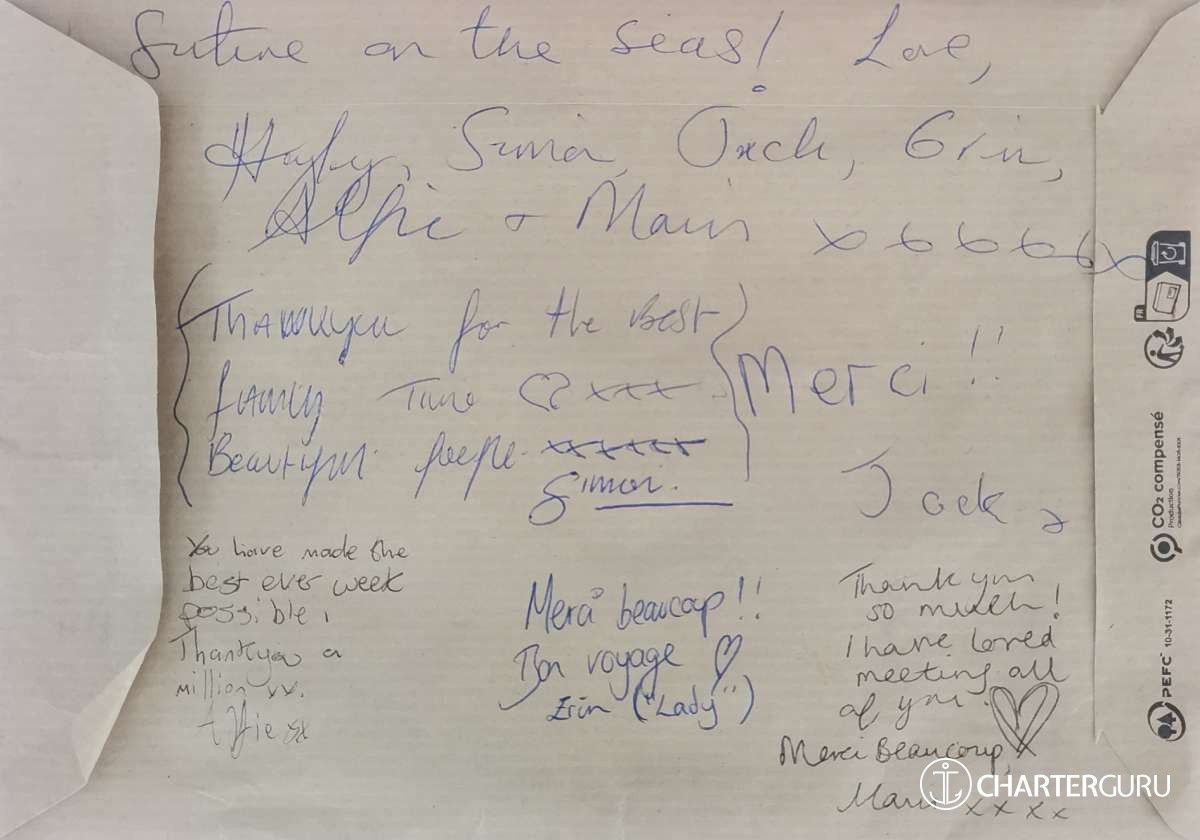 future on the seas! Love,
Hayley, Simon, Jack, Erin,
Alfie + Mairi x x x x x x
Thankyou for the Best
family Time ♡ xxx
Beautiful people. xxxxxx
Simon.
Merci!!
Jack x
You have made the
best ever week
possible,
Thankyou a
million xx.
Alfie xx
Merci beaucoup!!
Bon voyage ♡
Erin ("Lady")
Thank you
so much!
I have loved
meeting all
of you.
Merci Beaucoup, x
Mairi x x x x
FR
CO₂ compensé
Production
PEFC™ 10-31-1172
CHARTERGURU